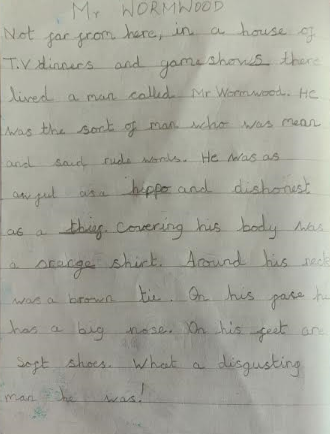 Mr WORMWOOD
Not far from here, in a house of
T.V dinners and gameshows there
lived a man called Mr Wormwood. He
was the sort of man who was mean
and said rude words. He was as
awful as a hippo and dishonest
as a thief. Covering his body was
a orange shirt. Around his neck
was a brown tie. On his face he
has a big nose. On his feet are
soft shoes. What a disgusting
man he was!